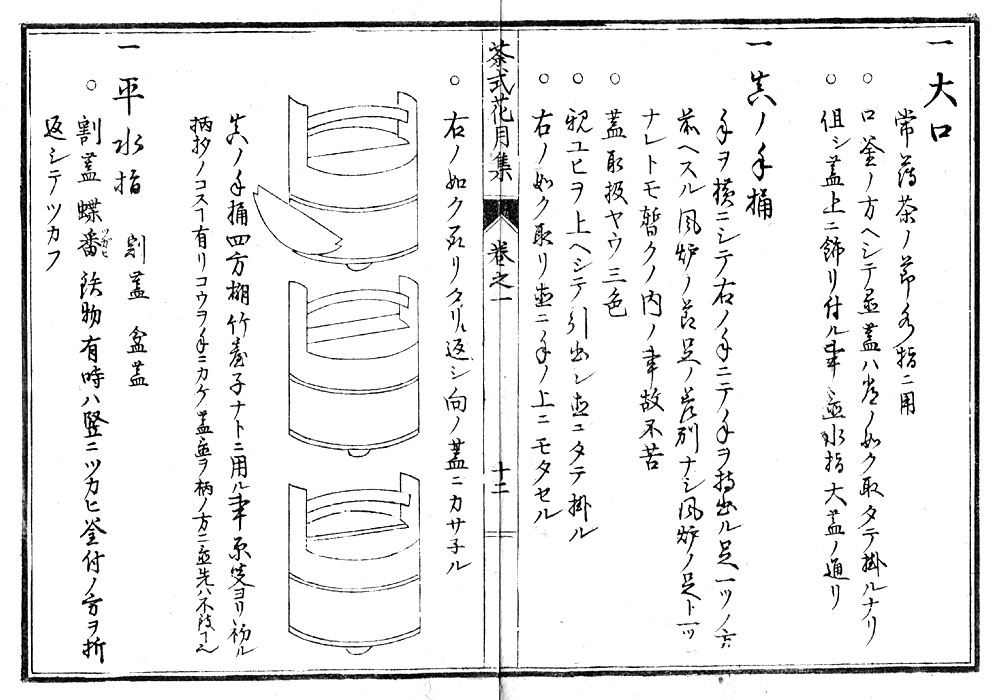 一 大口
常薄茶ノ節水指ニ用
○ 口釜ノ方ヘシテ置蓋ハ常ノ如ク取タテ掛ルナリ
○ 但シ蓋上ニ飾リ付ル事ニ並水指大蓋ノ通リ
一 真ノ手桶
手ヲ横ニシテ右ノ手ニテノ手ヲ持出ル足一ツノ方
前ヘスル風炉ノ節足ノ差別ナシ風炉ノ足ト一ツ
ナレトモ暫クノ内ノ事故不苦
○ 蓋取扱ヤウ三色
○ 親ユヒヲ上ヘシテ引出シ直ニタテ掛ル
○ 右ノ如ク取リ直ニノ手ノ上ニモタセル
茶式花月集
巻之一
十二
○ 右ノ如ク取リクリ返シ向ノ蓋ニカサ子ル
真ノ手桶四方棚竹台子ナトニ用ル事原叟ヨリ初ル
柄抄ノコスヿ有リコウヲ手ニカケ蓋置ヲ柄ノ方ニ置先ハ不
一 平水指 割蓋 盆蓋
○ 割蓋蝶番鉄物有時ハ竪ニツカヒ釜付ノ方ヲ折
返シテツカフ